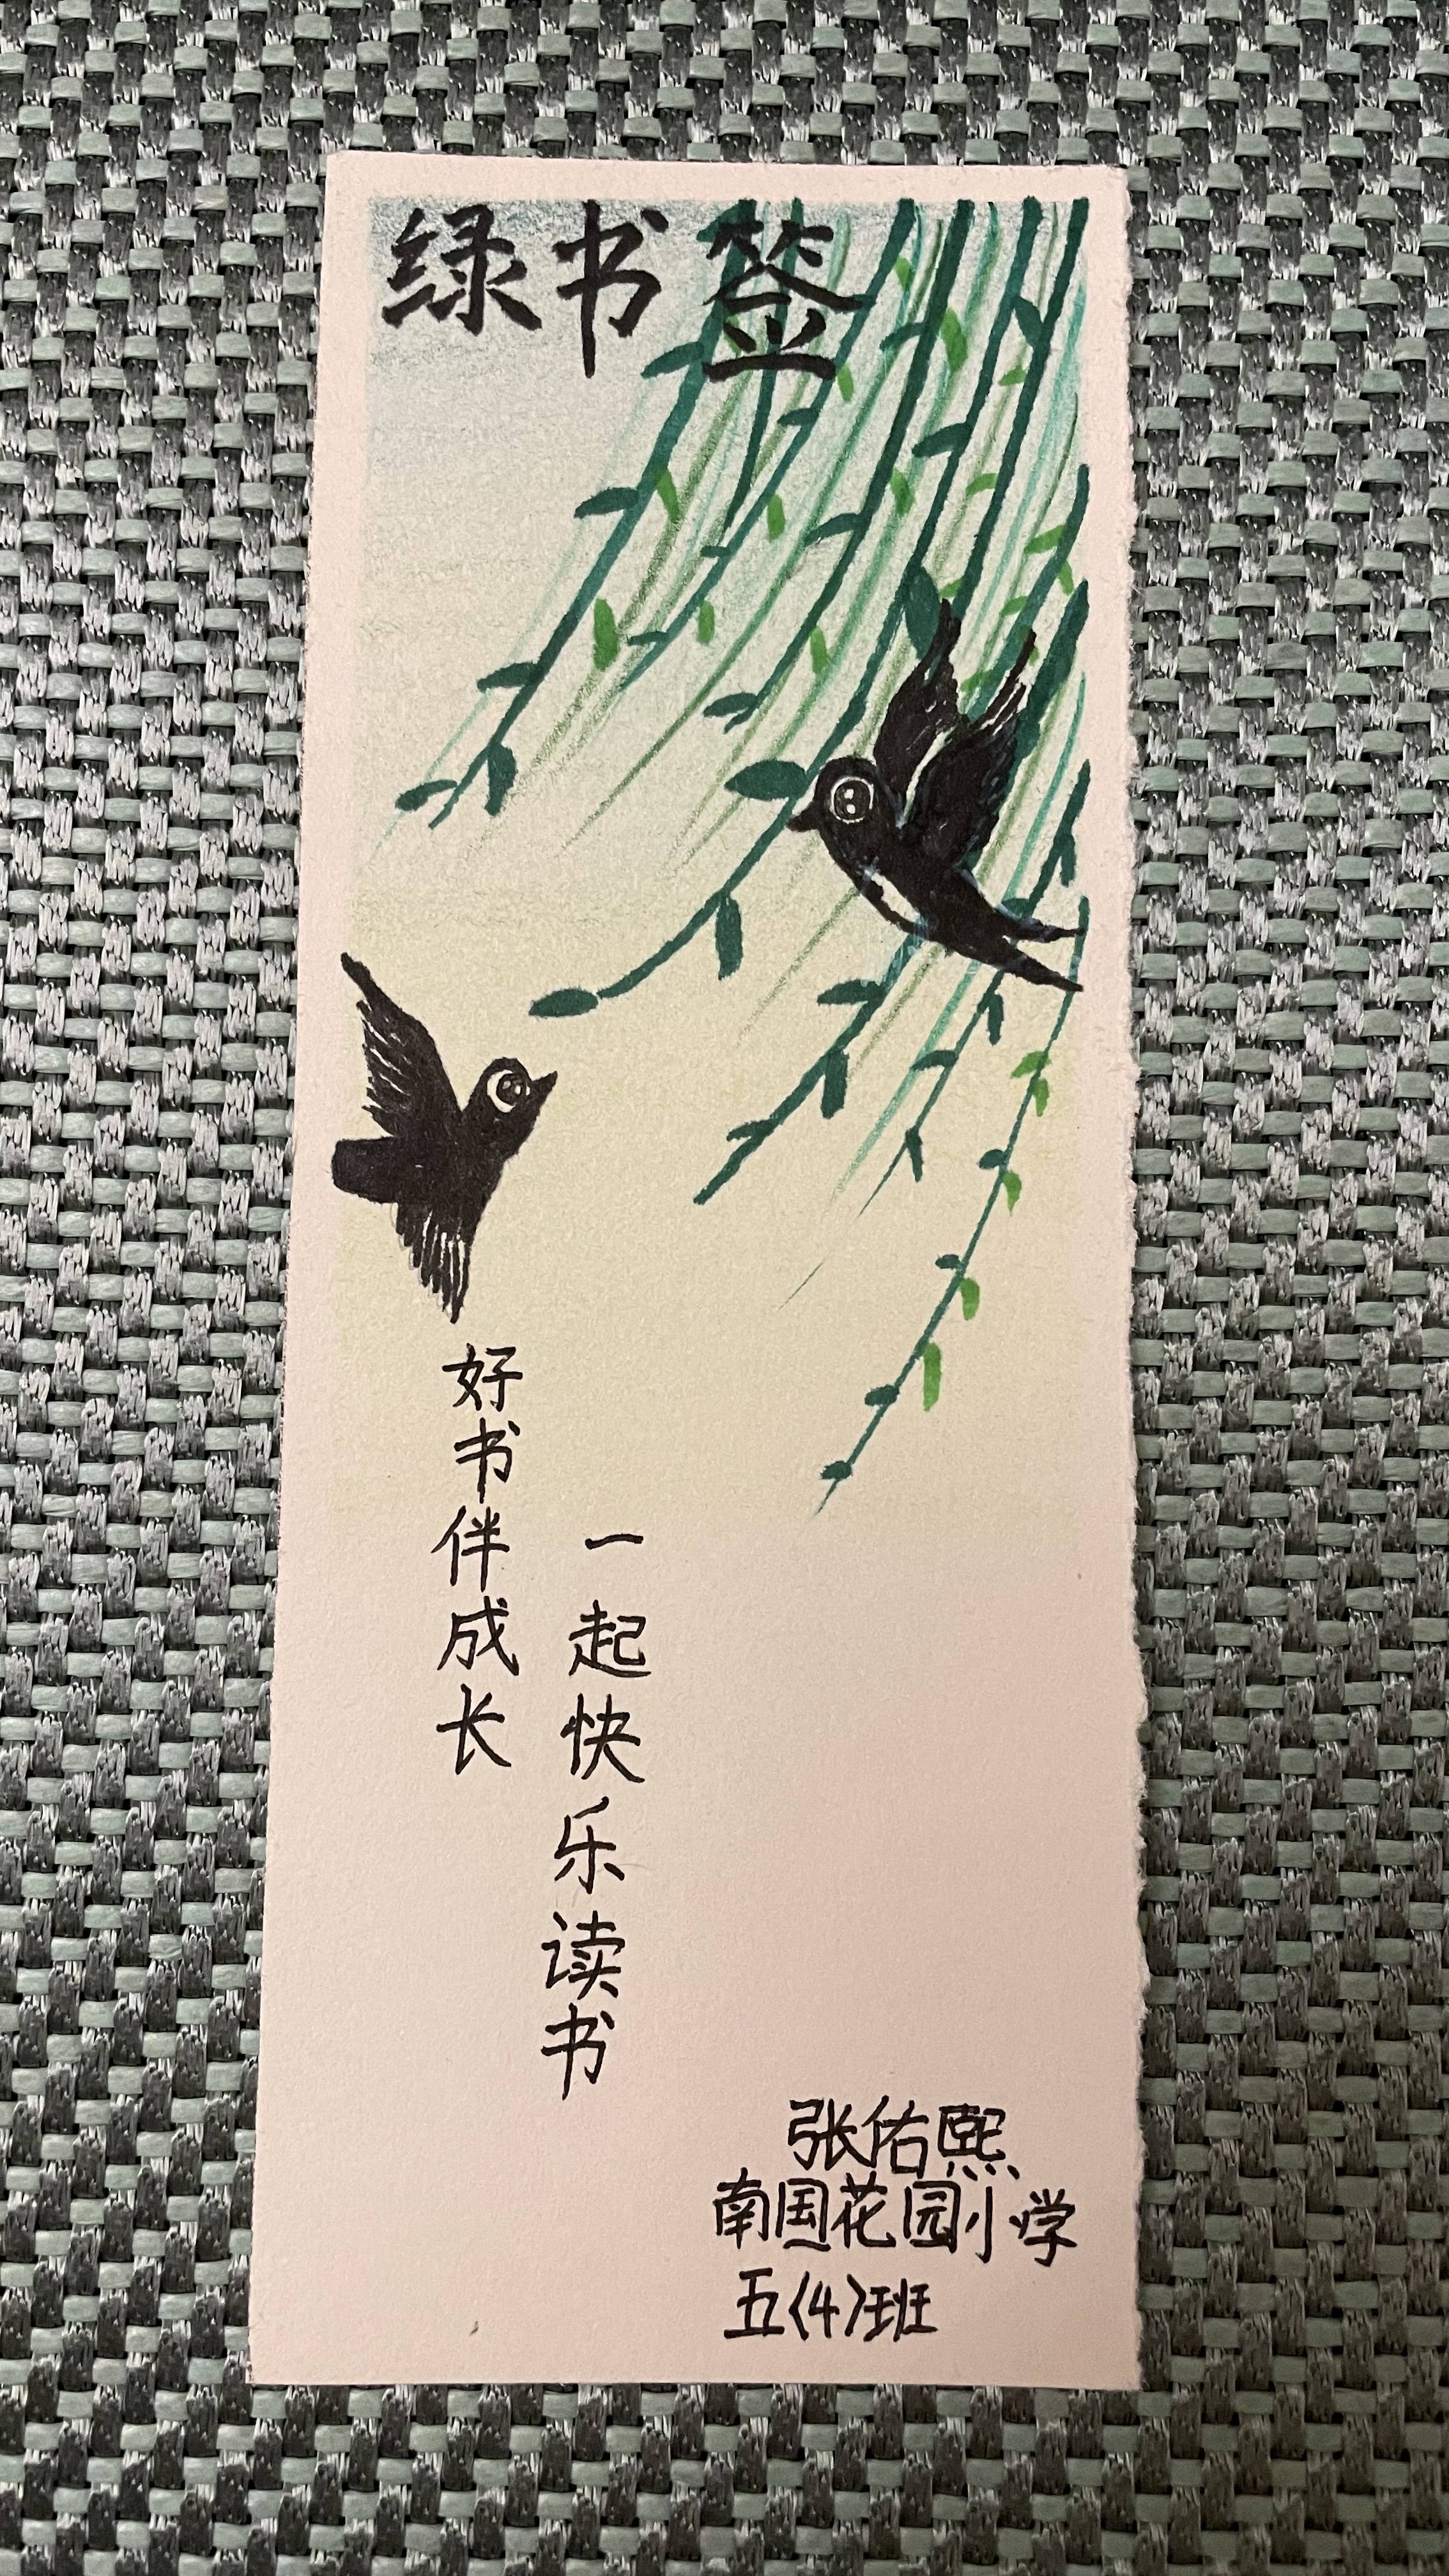 绿书签
好书伴成长
一起快乐读书
张佑熙
南国花园小学
五(4)班